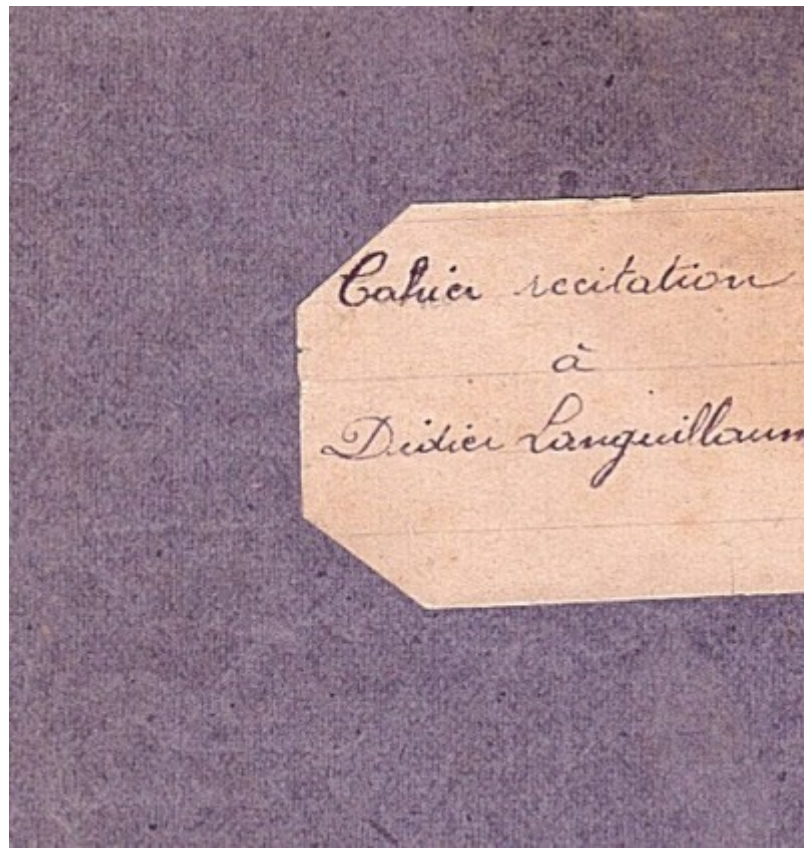 Cahier recitation
à
Didier Languillaum